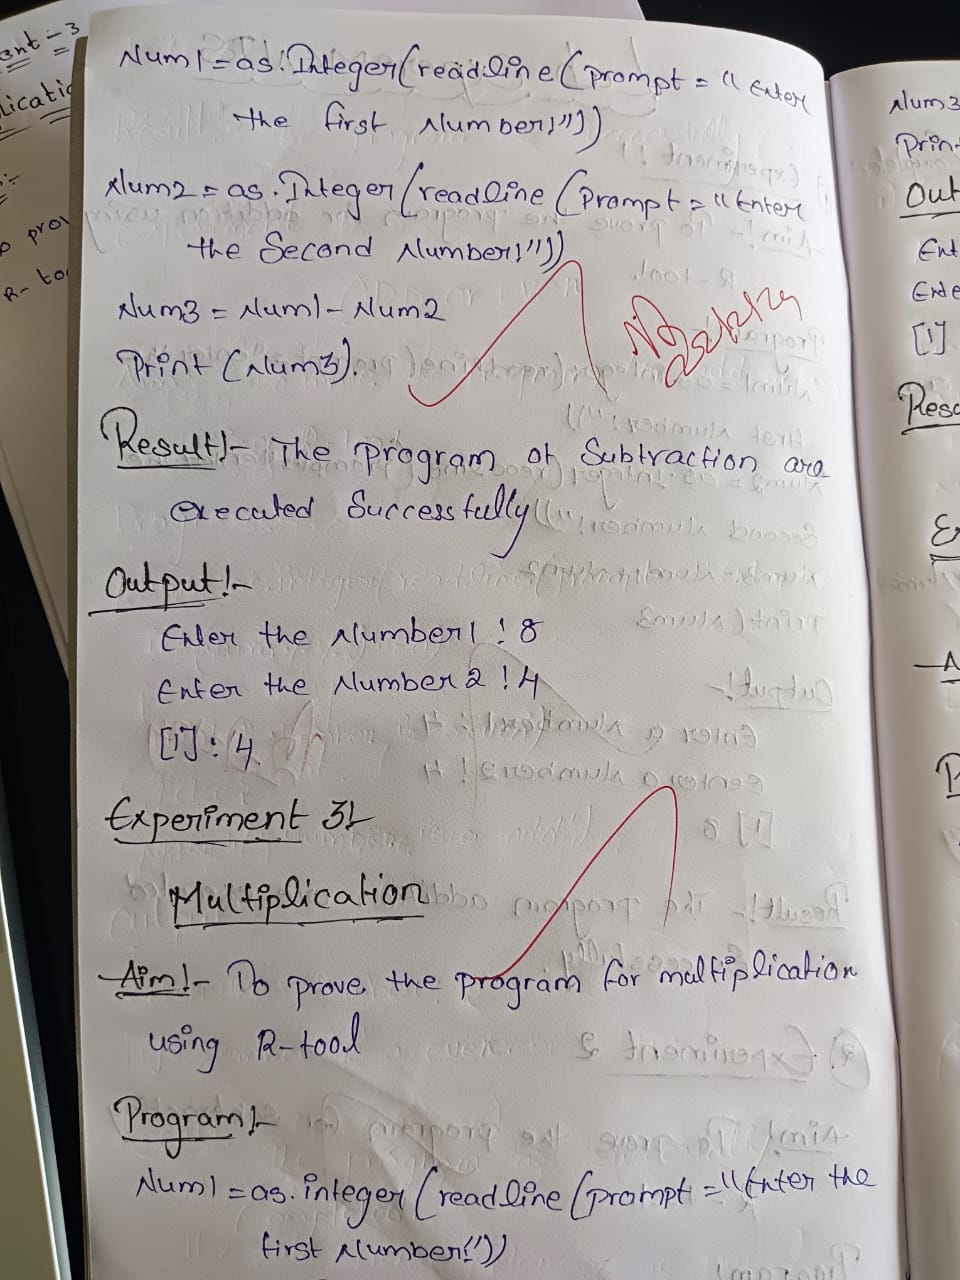 Num1 = as.Integer(readline(prompt = "Enter
the first Number!"))
Num2 = as.Integer(readline(Prompt = "Enter
the Second Number!"))
Num3 = Num1 - Num2
Print (Num3).
Result!- The program of Subtraction are
executed Successfully
Output!-
Enter the Number1 ! 8
Enter the Number2 ! 4
[1] : 4
Experiment 3!-
Multiplication
Aim!- To prove the program for multiplication
using R-tool
Program!-
Num1 = as.integer(readline(prompt = "Enter the
first Number!"))
ent - 3
R- to
Num3
Prin
Out
Ent
Ente
[1]
Resu